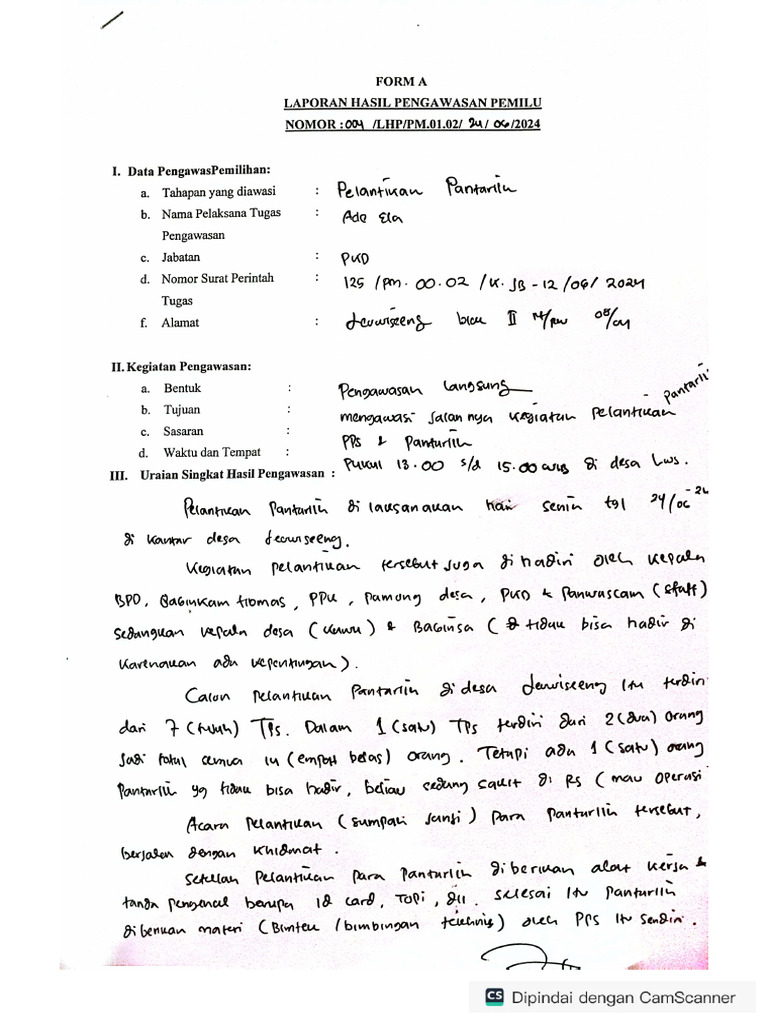 FORM A
LAPORAN HASIL PENGAWASAN PEMILU
NOMOR : 004 /LHP/PM.01.02/ 24/ 06/2024
I. Data PengawasPemilihan:
a. Tahapan yang diawasi : Pelantikan Pantarlih
b. Nama Pelaksana Tugas : Ade Ela
Pengawasan
c. Jabatan : PKD
d. Nomor Surat Perintah : 125 /PM.00.02 /K.JB-12/06/2024
Tugas
f. Alamat : Leuwiseeng blok II RT/RW 08/04
II. Kegiatan Pengawasan:
a. Bentuk : Pengawasan Langsung
b. Tujuan : mengawasi Jalannya kegiatan Pelantikan Pantarlih
c. Sasaran : PPS & Pantarlih
d. Waktu dan Tempat : Pukul 13.00 s/d 15.00 WIB di desa Lws.
III. Uraian Singkat Hasil Pengawasan :
Pelantikan Pantarlih di laksanakan hari senin tgl 24/06-24
di kantor desa Leuwiseeng.
Kegiatan pelantikan tersebut juga di hadiri oleh kepala
BPD, Babinkamtibmas, PPK, Pamong desa, PKD & Panwascam (staff)
Sedangkan kepala desa (kuwu) & Babinsa ( tidak bisa hadir di
karenakan ada kepentingan).
Calon Pelantikan Pantarlih di desa Leuwiseeng Itu terdiri
dari 7 (tujuh) TPS. Dalam 1 (satu) TPS terdiri dari 2 (dua) orang
Jadi total semua 14 (empat belas) orang. Tetapi ada 1 (satu) orang
Pantarlih yg tidak bisa hadir, beliau sedang sakit di RS (mau operasi
Acara Pelantikan (sumpah Janji) para Pantarlih tersebut,
berjalan dengan khidmat.
Setelah Pelantikan Para Pantarlih diberikan alat kerja &
tanda pengenal berupa Id card, Topi, dll. Selesai Itu Pantarlih
diberikan materi (Bimtek /bimbingan teichnis) oleh PPS Itu sendiri.
CS Dipindai dengan CamScanner